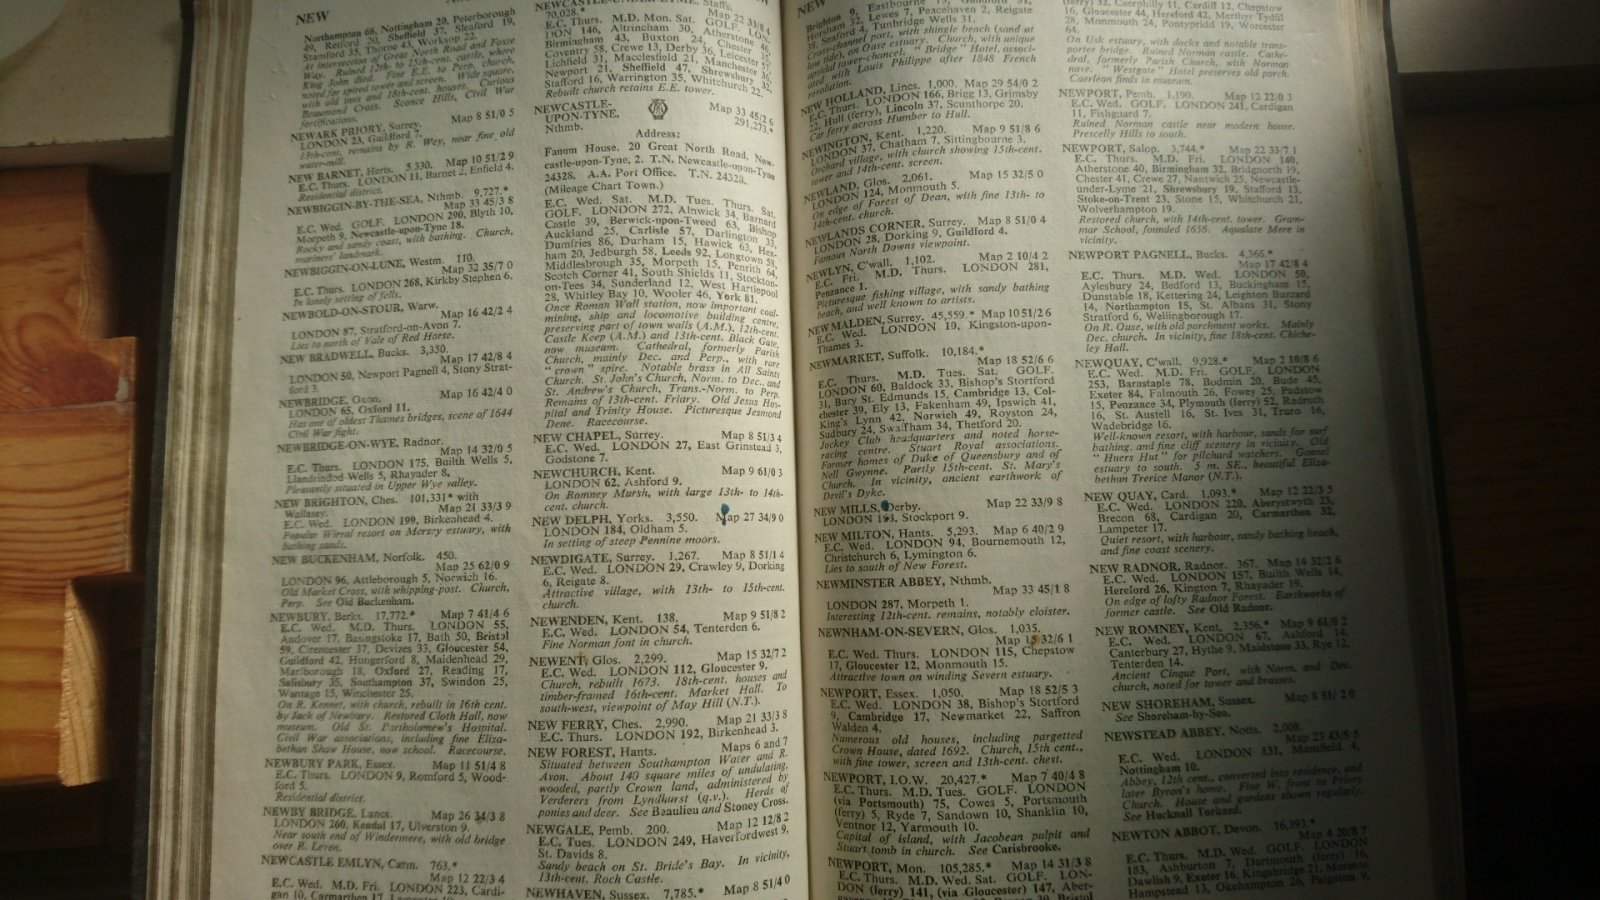 NEW
Northampton 66, Nottingham 20, Peterborough
49, Retford 20, Sheffield 37, Sleaford 19,
Stamford 35, Thorne 43, Worksop 22.
At intersection of Great North Road and Fosse
Way. Ruined 12th- to 15th-cent. castle, where
King John died. Fine E.E. to Perp. church,
noted for spired tower and screen. Wide square,
with old inns and 18th-cent. houses. Curious
Beaumond Cross. Sconce Hills, Civil War
fortifications.
NEWARK PRIORY, Surrey. Map 8 51/0 5
LONDON 23, Guildford 7.
13th-cent. remains by R. Wey, near fine old
water-mill.
NEW BARNET, Herts. 5,330. Map 10 51/2 9
E.C. Thurs. LONDON 11, Barnet 2, Enfield 4.
Residential district.
NEWBIGGIN-BY-THE-SEA, Nthmb. 9,727.*
Map 33 45/3 8
E.C. Wed. GOLF. LONDON 290, Blyth 10,
Morpeth 9, Newcastle-upon-Tyne 18.
Rocky and sandy coast, with bathing. Church,
mariners' landmark.
NEWBIGGIN-ON-LUNE, Westm. 110.
Map 32 35/7 0
E.C. Thurs. LONDON 268, Kirkby Stephen 6.
In lonely setting of fells.
NEWBOLD-ON-STOUR, Warw.
Map 16 42/2 4
LONDON 87, Stratford-on-Avon 7.
Lies to north of Vale of Red Horse.
NEW BRADWELL, Bucks. 3,350.
Map 17 42/8 4
LONDON 50, Newport Pagnell 4, Stony Strat-
ford 3.
NEWBRIDGE, Oxon. Map 16 42/4 0
LONDON 65, Oxford 11.
Has one of oldest Thames bridges, scene of 1644
Civil War fight.
NEWBRIDGE-ON-WYE, Radnor.
Map 14 32/0 5
E.C. Thurs. LONDON 175, Builth Wells 5,
Llandrindod Wells 5, Rhayader 8.
Pleasantly situated in Upper Wye valley.
NEW BRIGHTON, Ches. 101,331* with
Wallasey. Map 21 33/3 9
E.C. Wed. LONDON 199, Birkenhead 4.
Popular Wirral resort on Mersey estuary, with
bathing sands.
NEW BUCKENHAM, Norfolk. 450.
Map 25 62/0 9
LONDON 96, Attleborough 5, Norwich 16.
Old Market Cross, with whipping-post. Church,
Perp. See Old Buckenham.
NEWBURY, Berks. 17,772.* Map 7 41/4 6
E.C. Wed. M.D. Thurs. LONDON 55,
Andover 17, Basingstoke 17, Bath 50, Bristol
59, Cirencester 37, Devizes 33, Gloucester 54,
Guildford 42, Hungerford 8, Maidenhead 29,
Marlborough 18, Oxford 27, Reading 17,
Salisbury 35, Southampton 37, Swindon 25,
Wantage 15, Winchester 25.
On R. Kennet, with church, rebuilt in 16th cent.
by Jack of Newbury. Restored Cloth Hall, now
museum. Old St. Bartholomew's Hospital.
Civil War associations, including fine Eliza-
bethan Shaw House, now school. Racecourse.
NEWBURY PARK, Essex. Map 11 51/4 8
E.C. Thurs. LONDON 9, Romford 5, Wood-
ford 5.
Residential district.
NEWBY BRIDGE, Lancs. Map 26 34/3 8
LONDON 260, Kendal 17, Ulverston 9.
Near south end of Windermere, with old bridge
over R. Leven.
NEWCASTLE EMLYN, Carm. 763.*
Map 12 22/3 4
E.C. Wed. M.D. Fri. LONDON 223, Cardi-
gan 10, Carmarthen 17,
NEWCASTLE-UNDER-LYME, Staffs.
70,028.* Map 22 33/8 4
E.C. Thurs. M.D. Mon. Sat. GOLF. LON-
DON 146, Altrincham 30, Atherstone 46,
Birmingham 43, Buxton 24, Chester 35,
Coventry 58, Crewe 13, Derby 36, Leicester 57,
Lichfield 31, Macclesfield 21, Manchester 36,
Newport 21, Sheffield 47, Shrewsbury 32,
Stafford 16, Warrington 35, Whitchurch 22.
Rebuilt church retains E.E. tower.
NEWCASTLE-
UPON-TYNE, AA Map 33 45/2 6
Nthmb. 291,273.*
Address:
Fanum House, 20 Great North Road, New-
castle-upon-Tyne, 2. T.N. Newcastle-upon-Tyne
24328. A.A. Port Office. T.N. 24328.
(Mileage Chart Town.)
E.C. Wed. Sat. M.D. Tues. Thurs. Sat.
GOLF. LONDON 272, Alnwick 34, Barnard
Castle 39, Berwick-upon-Tweed 63, Bishop
Auckland 25, Carlisle 57, Darlington 33,
Dumfries 86, Durham 15, Hawick 63, Hex-
ham 20, Jedburgh 58, Leeds 92, Longtown 58,
Middlesbrough 35, Morpeth 15, Penrith 64,
Scotch Corner 41, South Shields 11, Stockton-
on-Tees 34, Sunderland 12, West Hartlepool
28, Whitley Bay 10, Wooler 46, York 81.
Once Roman Wall station, now important coal-
mining, ship and locomotive building centre,
preserving part of town walls (A.M.). 12th-cent.
Castle Keep (A.M.) and 13th-cent. Black Gate,
now museum. Cathedral, formerly Parish
Church, mainly Dec. and Perp., with rare
" crown " spire. Notable brass in All Saints
Church. St. John's Church, Norm. to Dec., and
St. Andrew's Church, Trans.-Norm. to Perp.
Remains of 13th-cent. Friary. Old Jesus Hos-
pital and Trinity House. Picturesque Jesmond
Dene. Racecourse.
NEW CHAPEL, Surrey. Map 8 51/3 4
E.C. Wed. LONDON 27, East Grinstead 3,
Godstone 7.
NEWCHURCH, Kent. Map 9 61/0 3
LONDON 62, Ashford 9.
On Romney Marsh, with large 13th- to 14th-
cent. church.
NEW DELPH, Yorks. 3,550. Map 27 34/9 0
LONDON 184, Oldham 5.
In setting of steep Pennine moors.
NEWDIGATE, Surrey. 1,267. Map 8 51/1 4
E.C. Wed. LONDON 29, Crawley 9, Dorking
6, Reigate 8.
Attractive village, with 13th- to 15th-cent.
church.
NEWENDEN, Kent. 138. Map 9 51/8 2
E.C. Wed. LONDON 54, Tenterden 6.
Fine Norman font in church.
NEWENT, Glos. 2,299. Map 15 32/7 2
E.C. Wed. LONDON 112, Gloucester 9.
Church, rebuilt 1673. 18th-cent. houses and
timber-framed 16th-cent. Market Hall. To
south-west, viewpoint of May Hill (N.T.).
NEW FERRY, Ches. 2,990. Map 21 33/3 8
E.C. Thurs. LONDON 192, Birkenhead 3.
NEW FOREST, Hants. Maps 6 and 7
Situated between Southampton Water and R.
Avon. About 140 square miles of undulating,
wooded, partly Crown land, administered by
Verderers from Lyndhurst (q.v.). Herds of
ponies and deer. See Beaulieu and Stoney Cross.
NEWGALE, Pemb. 200. Map 12 12/8 2
E.C. Tues. LONDON 249, Haverfordwest 9,
St. Davids 8.
Sandy beach on St. Bride's Bay. In vicinity,
13th-cent. Roch Castle.
NEWHAVEN, Sussex. 7,785.* Map 8 51/4 0
NEW
Brighton 9, Eastbourne
Horsham 32, Lewes 7, Peacehaven 2, Reigate
38, Seaford 4, Tunbridge Wells 31.
Cross-channel port, with shingle beach (sand at
low tide), on Ouse estuary. Church, with unique
apsidal tower-chancel. " Bridge " Hotel, associ-
ated with Louis Philippe after 1848 French
revolution.
NEW HOLLAND, Lincs. 1,000. Map 29 54/0 2
E.C. Thurs. LONDON 166, Brigg 13, Grimsby
22, Hull (ferry), Lincoln 37, Scunthorpe 20.
Car ferry across Humber to Hull.
NEWINGTON, Kent. 1,220. Map 9 51/8 6
LONDON 37, Chatham 7, Sittingbourne 3.
Orchard village, with church showing 15th-cent.
tower and 14th-cent. screen.
NEWLAND, Glos. 2,061. Map 15 32/5 0
LONDON 124, Monmouth 5.
On edge of Forest of Dean, with fine 13th- to
14th-cent. church.
NEWLANDS CORNER, Surrey. Map 8 51/0 4
LONDON 28, Dorking 9, Guildford 4.
Famous North Downs viewpoint.
NEWLYN, C'wall. 1,102. Map 2 10/4 2
E.C. Fri. M.D. Thurs. LONDON 281,
Penzance 1.
Picturesque fishing village, with sandy bathing
beach, and well known to artists.
NEW MALDEN, Surrey. 45,559.* Map 10 51/2 6
E.C. Wed. LONDON 10, Kingston-upon-
Thames 3.
NEWMARKET, Suffolk. 10,184.*
Map 18 52/6 6
E.C. Thurs. M.D. Tues. Sat. GOLF.
LONDON 60, Baldock 33, Bishop's Stortford
31, Bury St. Edmunds 15, Cambridge 13, Col-
chester 39, Ely 13, Fakenham 49, Ipswich 41,
King's Lynn 42, Norwich 49, Royston 24,
Sudbury 24, Swaffham 34, Thetford 20.
Jockey Club headquarters and noted horse-
racing centre. Stuart Royal associations.
Former homes of Duke of Queensbury and of
Nell Gwynne. Partly 15th-cent. St. Mary's
Church. In vicinity, ancient earthwork of
Devil's Dyke.
NEW MILLS, Derby. Map 22 33/9 8
LONDON 1 3, Stockport 9.
NEW MILTON, Hants. 5,293. Map 6 40/2 9
E.C. Wed. LONDON 94, Bournemouth 12,
Christchurch 6, Lymington 6.
Lies to south of New Forest.
NEWMINSTER ABBEY, Nthmb.
Map 33 45/1 8
LONDON 287, Morpeth 1.
Interesting 12th-cent. remains, notably cloister.
NEWNHAM-ON-SEVERN, Glos. 1,035.
Map 15 32/6 1
E.C. Wed. Thurs. LONDON 115, Chepstow
17, Gloucester 12, Monmouth 15.
Attractive town on winding Severn estuary.
NEWPORT, Essex. 1,050. Map 18 52/5 3
E.C. Wed. LONDON 38, Bishop's Stortford
9, Cambridge 17, Newmarket 22, Saffron
Walden 4.
Numerous old houses, including pargetted
Crown House, dated 1692. Church, 15th cent.,
with fine tower, screen and 13th-cent. chest.
NEWPORT, I.O.W. 20,427.* Map 7 40/4 8
E.C. Thurs. M.D. Tues. GOLF. LONDON
(via Portsmouth) 75, Cowes 5, Portsmouth
(ferry) 5, Ryde 7, Sandown 10, Shanklin 10,
Ventnor 12, Yarmouth 10.
Capital of island, with Jacobean pulpit and
Stuart tomb in church. See Carisbrooke.
NEWPORT, Mon. 105,285.* Map 14 31/3 8
E.C. Thurs. M.D. Wed. Sat. GOLF. LON-
DON (ferry) 141, (via Gloucester) 147, Aber-
(ferry) 32, Caerphilly 11, Cardiff 12, Chepstow
16, Gloucester 44, Hereford 42, Merthyr Tydfil
28, Monmouth 24, Pontypridd 19, Worcester
64.
On Usk estuary, with docks and notable trans-
porter bridge. Ruined Norman castle. Cathe-
dral, formerly Parish Church, with Norman
nave. " Westgate " Hotel preserves old porch.
Caerleon finds in museum.
NEWPORT, Pemb. 1,190. Map 12 22/0 3
E.C. Wed. GOLF. LONDON 241, Cardigan
11, Fishguard 7.
Ruined Norman castle near modern house.
Prescelly Hills to south.
NEWPORT, Salop. 3,744.* Map 22 33/7 1
E.C. Thurs. M.D. Fri. LONDON 140,
Atherstone 40, Birmingham 32, Bridgnorth 19,
Chester 41, Crewe 27, Nantwich 25, Newcastle-
under-Lyme 21, Shrewsbury 19, Stafford 13,
Stoke-on-Trent 23, Stone 15, Whitchurch 21,
Wolverhampton 19.
Restored church, with 14th-cent. tower. Gram-
mar School, founded 1656. Aqualate Mere in
vicinity.
NEWPORT PAGNELL, Bucks. 4,366.*
Map 17 42/8 4
E.C. Thurs. M.D. Wed. LONDON 50,
Aylesbury 24, Bedford 13, Buckingham 15,
Dunstable 18, Kettering 24, Leighton Buzzard
14, Northampton 15, St. Albans 31, Stony
Stratford 6, Wellingborough 17.
On R. Ouse, with old parchment works. Mainly
Dec. church. In vicinity, fine 18th-cent. Chiche-
ley Hall.
NEWQUAY, C'wall. 9,928.* Map 2 10/8 6
E.C. Wed. M.D. Fri. GOLF. LONDON
253, Barnstaple 78, Bodmin 20, Bude 45,
Exeter 84, Falmouth 26, Fowey 25, Padstow
15, Penzance 34, Plymouth (ferry) 52, Redruth
16, St. Austell 16, St. Ives 31, Truro 16,
Wadebridge 16.
Well-known resort, with harbour, sands for surf
bathing, and fine cliff scenery in vicinity. Old
" Huers Hut " for pilchard watchers. Gannel
estuary to south. 5 m. SE., beautiful Eliza-
bethan Trerice Manor (N.T.).
NEW QUAY, Card. 1,093.* Map 12 22/3 5
E.C. Wed. LONDON 220, Aberystwyth 23,
Brecon 68, Cardigan 20, Carmarthen 32,
Lampeter 17.
Quiet resort, with harbour, sandy bathing beach,
and fine coast scenery.
NEW RADNOR, Radnor. 367. Map 14 32/2 6
E.C. Wed. LONDON 157, Builth Wells 14,
Hereford 26, Kington 7, Rhayader 19.
On edge of lofty Radnor Forest. Earthworks of
former castle. See Old Radnor.
NEW ROMNEY, Kent. 2,356.* Map 9 61/0 2
E.C. Wed. LONDON 67, Ashford 14,
Canterbury 27, Hythe 9, Maidstone 33, Rye 12,
Tenterden 14.
Ancient Cinque Port, with Norm. and Dec.
church, noted for tower and brasses.
NEW SHOREHAM, Sussex. Map 8 51/2 0
See Shoreham-by-Sea.
NEWSTEAD ABBEY, Notts. 2,008.
Map 23 43/5 5
E.C. Wed. LONDON 131, Mansfield 4,
Nottingham 10.
Abbey, 12th cent., converted into residence, and
later Byron's home. Fine W. front to Priory
Church. House and gardens shown regularly.
See Hucknall Torkard.
NEWTON ABBOT, Devon. 16,393.*
Map 4 20/8 7
E.C. Thurs. M.D. Wed. GOLF. LONDON
183, Ashburton 7, Dartmouth (ferry) 16,
Dawlish 9, Exeter 16, Kingsbridge 21, Moreton
Hampstead 13, Okehampton 26, Paignton 9,